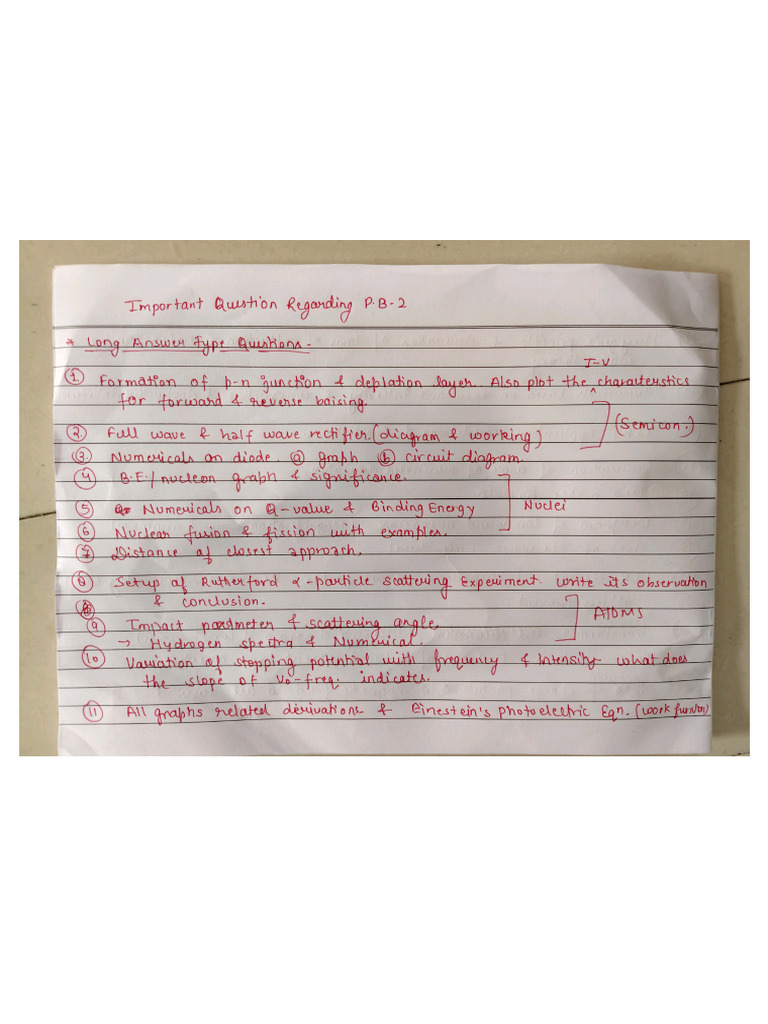 Important Question Regarding P.B-2
* Long Answer Type Questions -
I-V
① Formation of p-n junction & deplation layer. Also plot the ^ characterstics
for forward & reverse baising.
② Full wave & half wave rectifier. (diagram & working)
(Semicon.)
③ Numericals on diode. ⓐ graph ⓑ circuit diagram.
④ B.E./nucleon graph & significance.
⑤ Numericals on Q-value & Binding Energy
Nuclei
⑥ Nuclear fusion & fission with examples.
⑦ Distance of closest approach.
⑧ Setup of Rutherford α-particle scattering Experiment. Write its observation
& conclusion.
ATOMS
⑨ Impact parameter & scattering angle
→ Hydrogen spectra & Numerical.
⑩ Variation of stopping potential with frequency & Intensity what does
the slope of V₀-freq. indicates.
⑪ All graphs related derivations & Einestein's photoelectric Eqn. (work funtion)